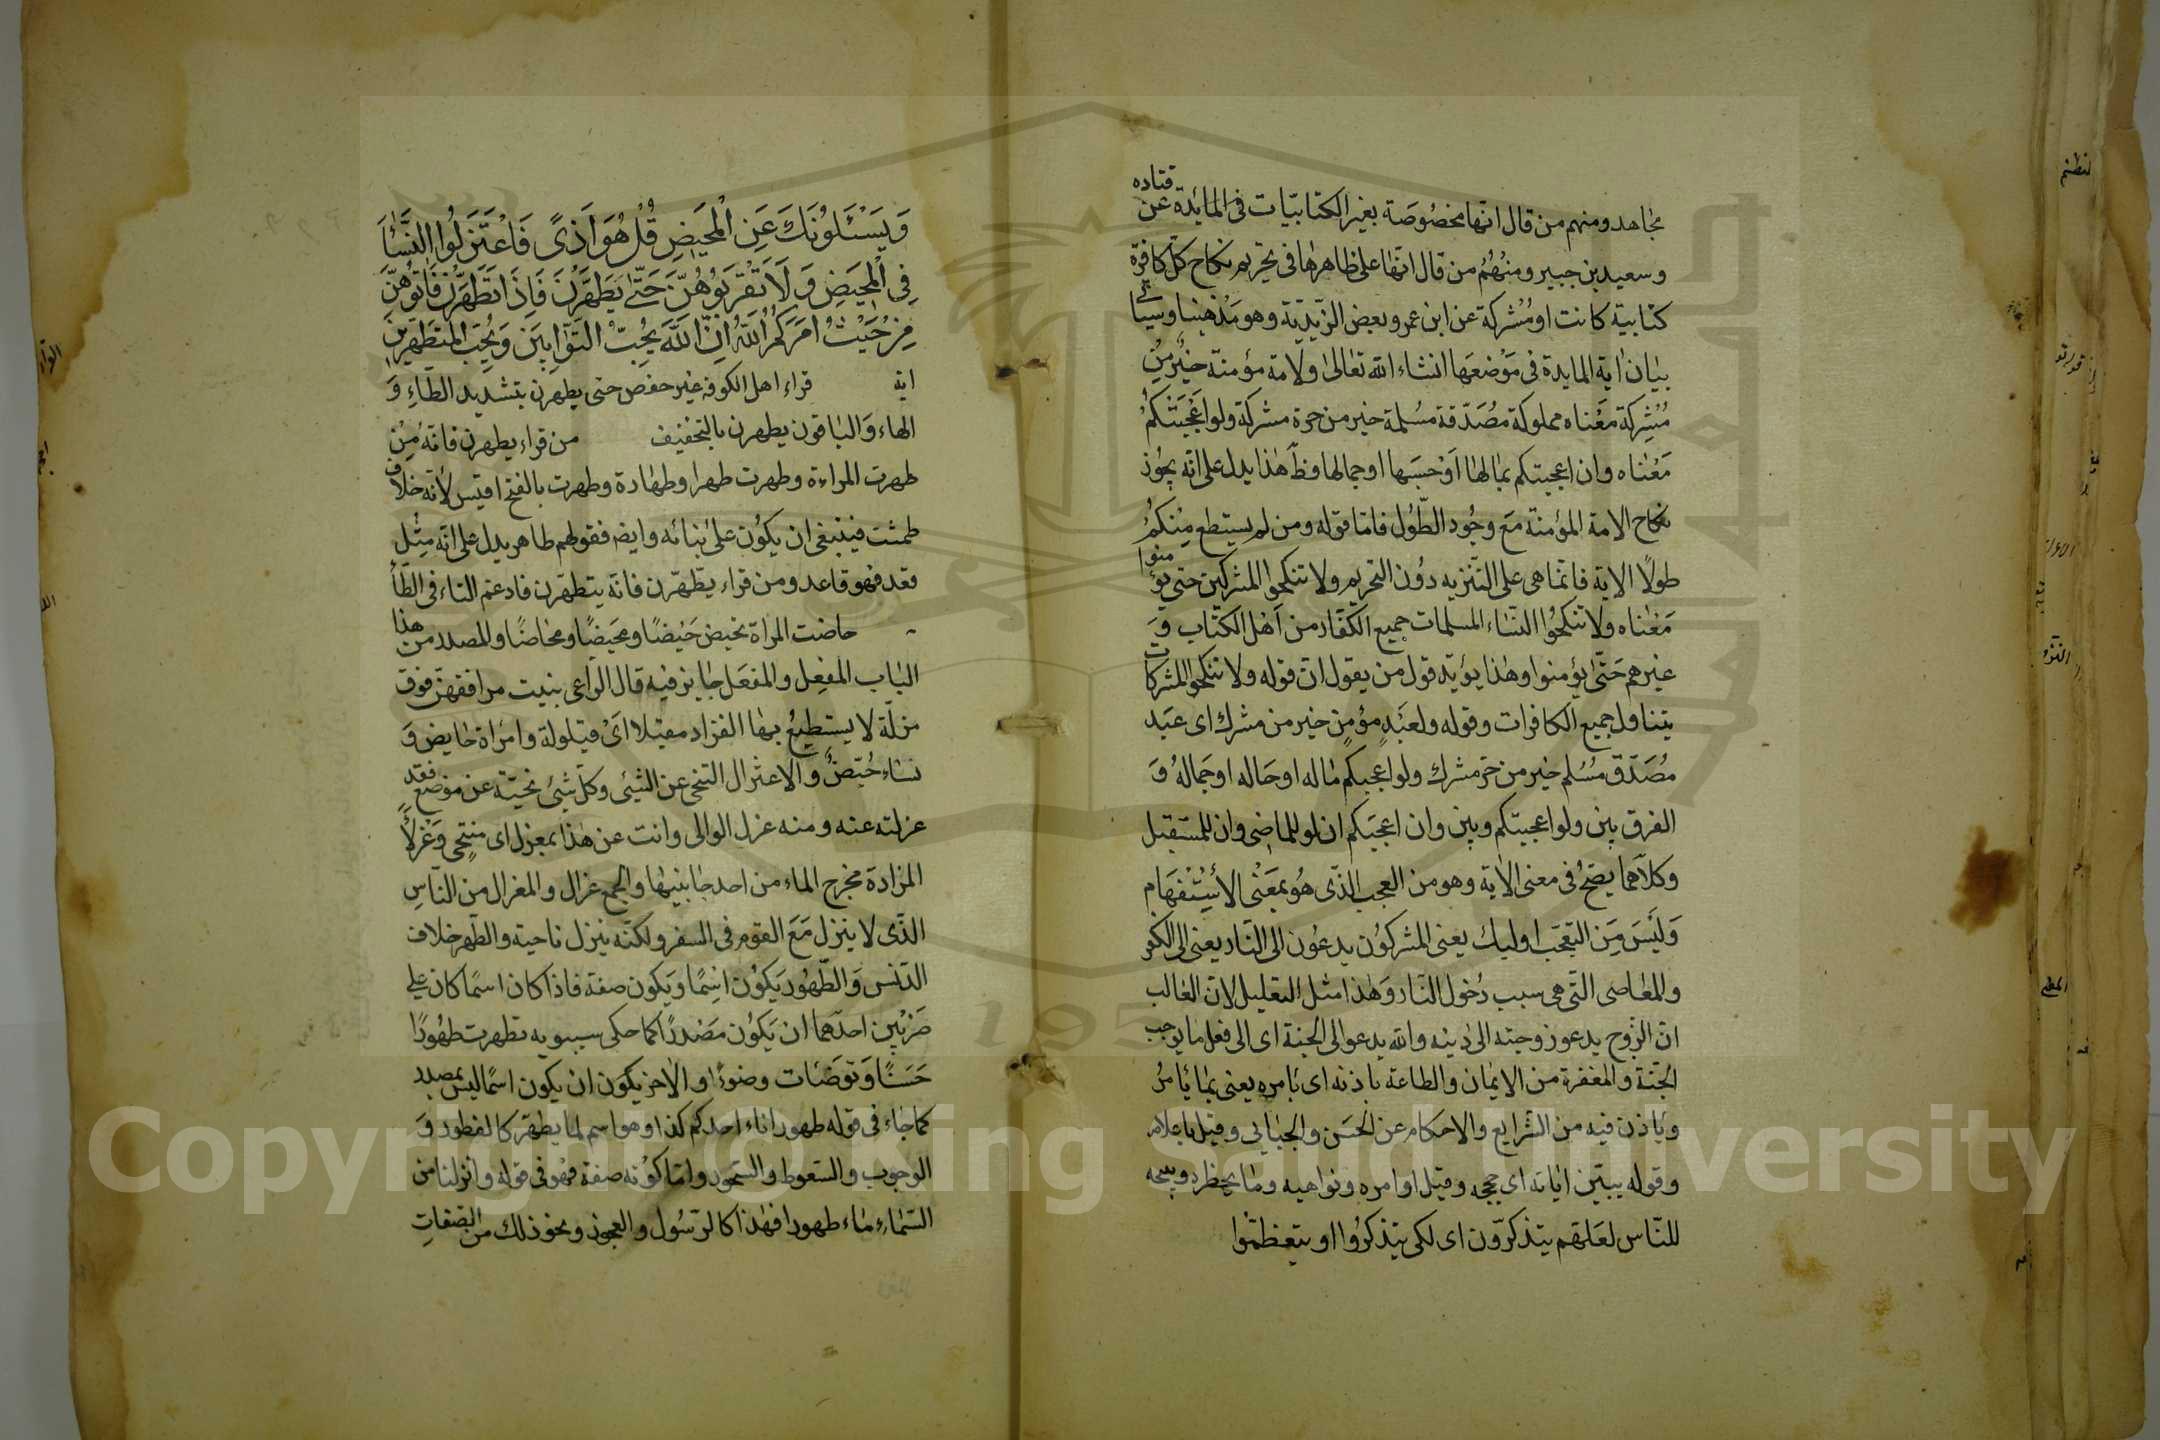 مجاهد ومنهم من قال انها مخصوصة بغير الكتابيات فى المائدة عن قتاده
وسعيد بن جبير ومنهم من قال انها على ظاهرها فى تحريم نكاح كل كافرة
كتابية كانت او مشركة عن ابن عمر وبعض الزيدية وهو مذهبنا وسياتى
بيان اية المايدة فى موضعها انشاء الله تعالى ولامة مؤمنة خير من
مشركة معناه مملوكة مصدقة مسلمة خير من حرة مشركة ولو اعجبتكم
معناه وان اعجبتكم بمالها او حسبها او جمالها وظ هذا يدل على انه يجوز
نكاح الامة المؤمنة مع وجود الطول فاما قوله ومن لم يستطع منكم
طولا الاية فانما هى على التنزيه دون التحريم ولا تنكحوا المشركين حتى يؤمنوا
معناه ولا تنكحوا النساء المسلمات جميع الكفار من اهل الكتاب و
غيرهم حتى يؤمنوا وهذا يؤيد قول من يقول ان قوله ولا تنكحوا المشركات
يتناول جميع الكافرات وقوله ولعبد مؤمن خير من مشرك اى عبد
مصدق مسلم خير من حر مشرك ولو اعجبكم ماله او حاله او جماله و
الفرق بين ولو اعجبتكم وبين وان اعجبتكم ان لو للماضى وان للمستقبل
وكلاهما يصح فى معنى الاية وهو من العجب الذى هو بمعنى الاستفهام
وليس من التعجب اوليك يعنى المشركون يدعون الى النار يعنى الى الكفر
والمعاصى التى هى سبب دخول النار وهذا مثل التعليل لان الغالب
ان الزوج يدعو زوجته الى دينه والله يدعوا الى الجنة اى الى فعل ما يوجب
الجنة والمغفرة من الايمان والطاعة باذنه اى بامره يعنى بما يامر
وياذن فيه من الشرايع والاحكام عن الحسن والجبايى وقيل باعلامه
وقوله يبين اياته اى حججه وقيل اوامره ونواهيه وما يحظره ويبيحه
للناس لعلهم يتذكرون اى لكى يتذكروا او يتعظوا
وَيَسْئَلُونَكَ عَنِ الْمَحِيضِ قُلْ هُوَ اَذًى فَاعْتَزِلُوا النِّسَاءَ
فِى الْمَحِيضِ وَلَا تَقْرَبُوهُنَّ حَتَّى يَطْهُرْنَ فَاِذَا تَطَهَّرْنَ فَاْتُوهُنَّ
مِنْ حَيْثُ اَمَرَكُمُ اللَّهُ اِنَّ اللَّهَ يُحِبُّ التَّوَّابِينَ وَيُحِبُّ الْمُتَطَهِّرِينَ
اية قراء اهل الكوفه غير حفص حتى يطهرن بتشديد الطاء و
الهاء والباقون يطهرن بالتخفيف من قراء يطهرن فانه من
طهرت المراءة وطهرت طهرا وطهارة وطهرت بالفتح اقيس لانه خلاف
طمثت فينبغى ان يكون على بنائه وايضه فقولهم طاهر يدل على انه مثل
قعد فهو قاعد ومن قراء يطهرن فانه يتطهرن فادغم التاء فى الطاء
حاضت المراة تحيض حيضا ومحيضا ومحاضا والمصدر من هذا
الباب المفعِل والمفعَل جايز فيه قال الراعى بنيت مرافقهن فوق
مزلة لا يستطيع بها القراد مقيلا اى قيلولة وامراة حايض و
نساء حيض والاعتزال التنحى عن الشيئ وكل شيئ نحيته عن موضع فقد
عزلته عنه ومنه عزل الوالى وانت عن هذا بمعزل اى منتحى وعزلاء
المزادة مخرج الماء من احد جانبيها والجمع عزال والمعزال من الناس
الذى لا ينزل مع القوم فى السفر ولكنه ينزل ناحية والطهر خلاف
الدنس والطهور يكون اسما ويكون صفة فاذا كان اسما كان على
ضربين احدهما ان يكون مصدرا كما حكى سيبويه تطهرت طهورا
حسنا وتوضئات وضوءا والاخر يكون ان يكون اسما ليس بمصدر
كما جاء فى قوله طهور اناء احدكم كذا وهو اسم لما يطهر كالفطور و
الوجور والسعوط والسحور واما كونه صفة فهو فى قوله وانزلنا من
السماء ماء طهورا فهذا كالرسول والعجوز ونحو ذلك من الصفات
Copyright © King Saud University
1957